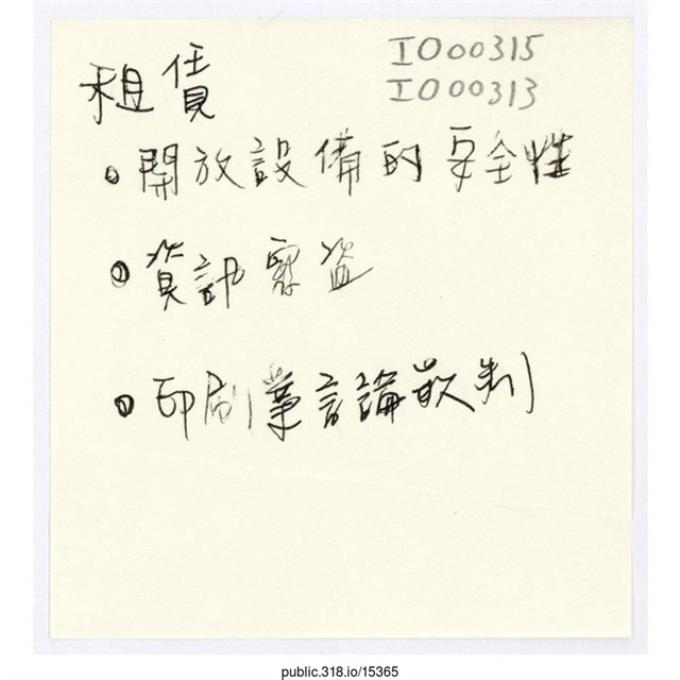 租賃
IO00315
IO00313
開放設備的安全性
資訊竊盜
印刷業言論
public.318.io/15365